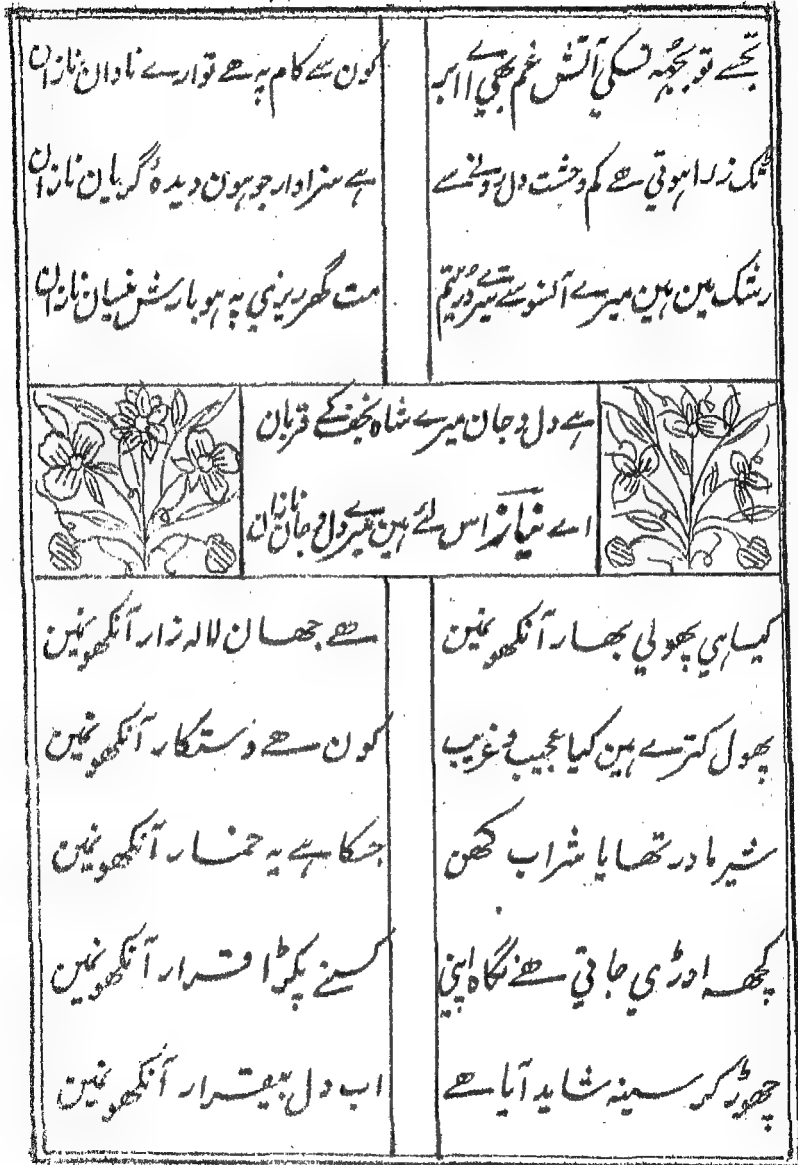 تجھسے تو بجھہ نسکي آتش غم بھي اے ابر
کون سے کام پہ ھے تو ارے نادان نازان
ٹک زرا ہوتي ھے کم وحشت دل رونے سے
ہے سزاوار جو ہون دیدۂ گریان نازان
رشک مین ہین میرے آنسو سے تیرے دُرِّ یتیم
مت گھر ریزي پہ ہو بارش نیسان نازان
ہے دل و جان میرے شاہ نجف کے قربان
اے نیاز اس لئے ہین میرے دل و جان نازان
کیسا ہي پھولي بھار آنکھو نمین
ھے جھان لالہ زار آنکھو نمین
پھول کترے ہین کیا عجیب و غریب
کون ھے دستکار آنکھو نمین
شیر مادر تھا یا شراب کھن
جسکا ہے یہ خمار آنکھو نمین
کچھہ اوڑي جاتي ھے نگاہ اپني
کسنے پکڑا قرار آنکھو نمین
چھوڑ کر سینہ شاید آیا ھے
اب دل بیقرار آنکھو نمین